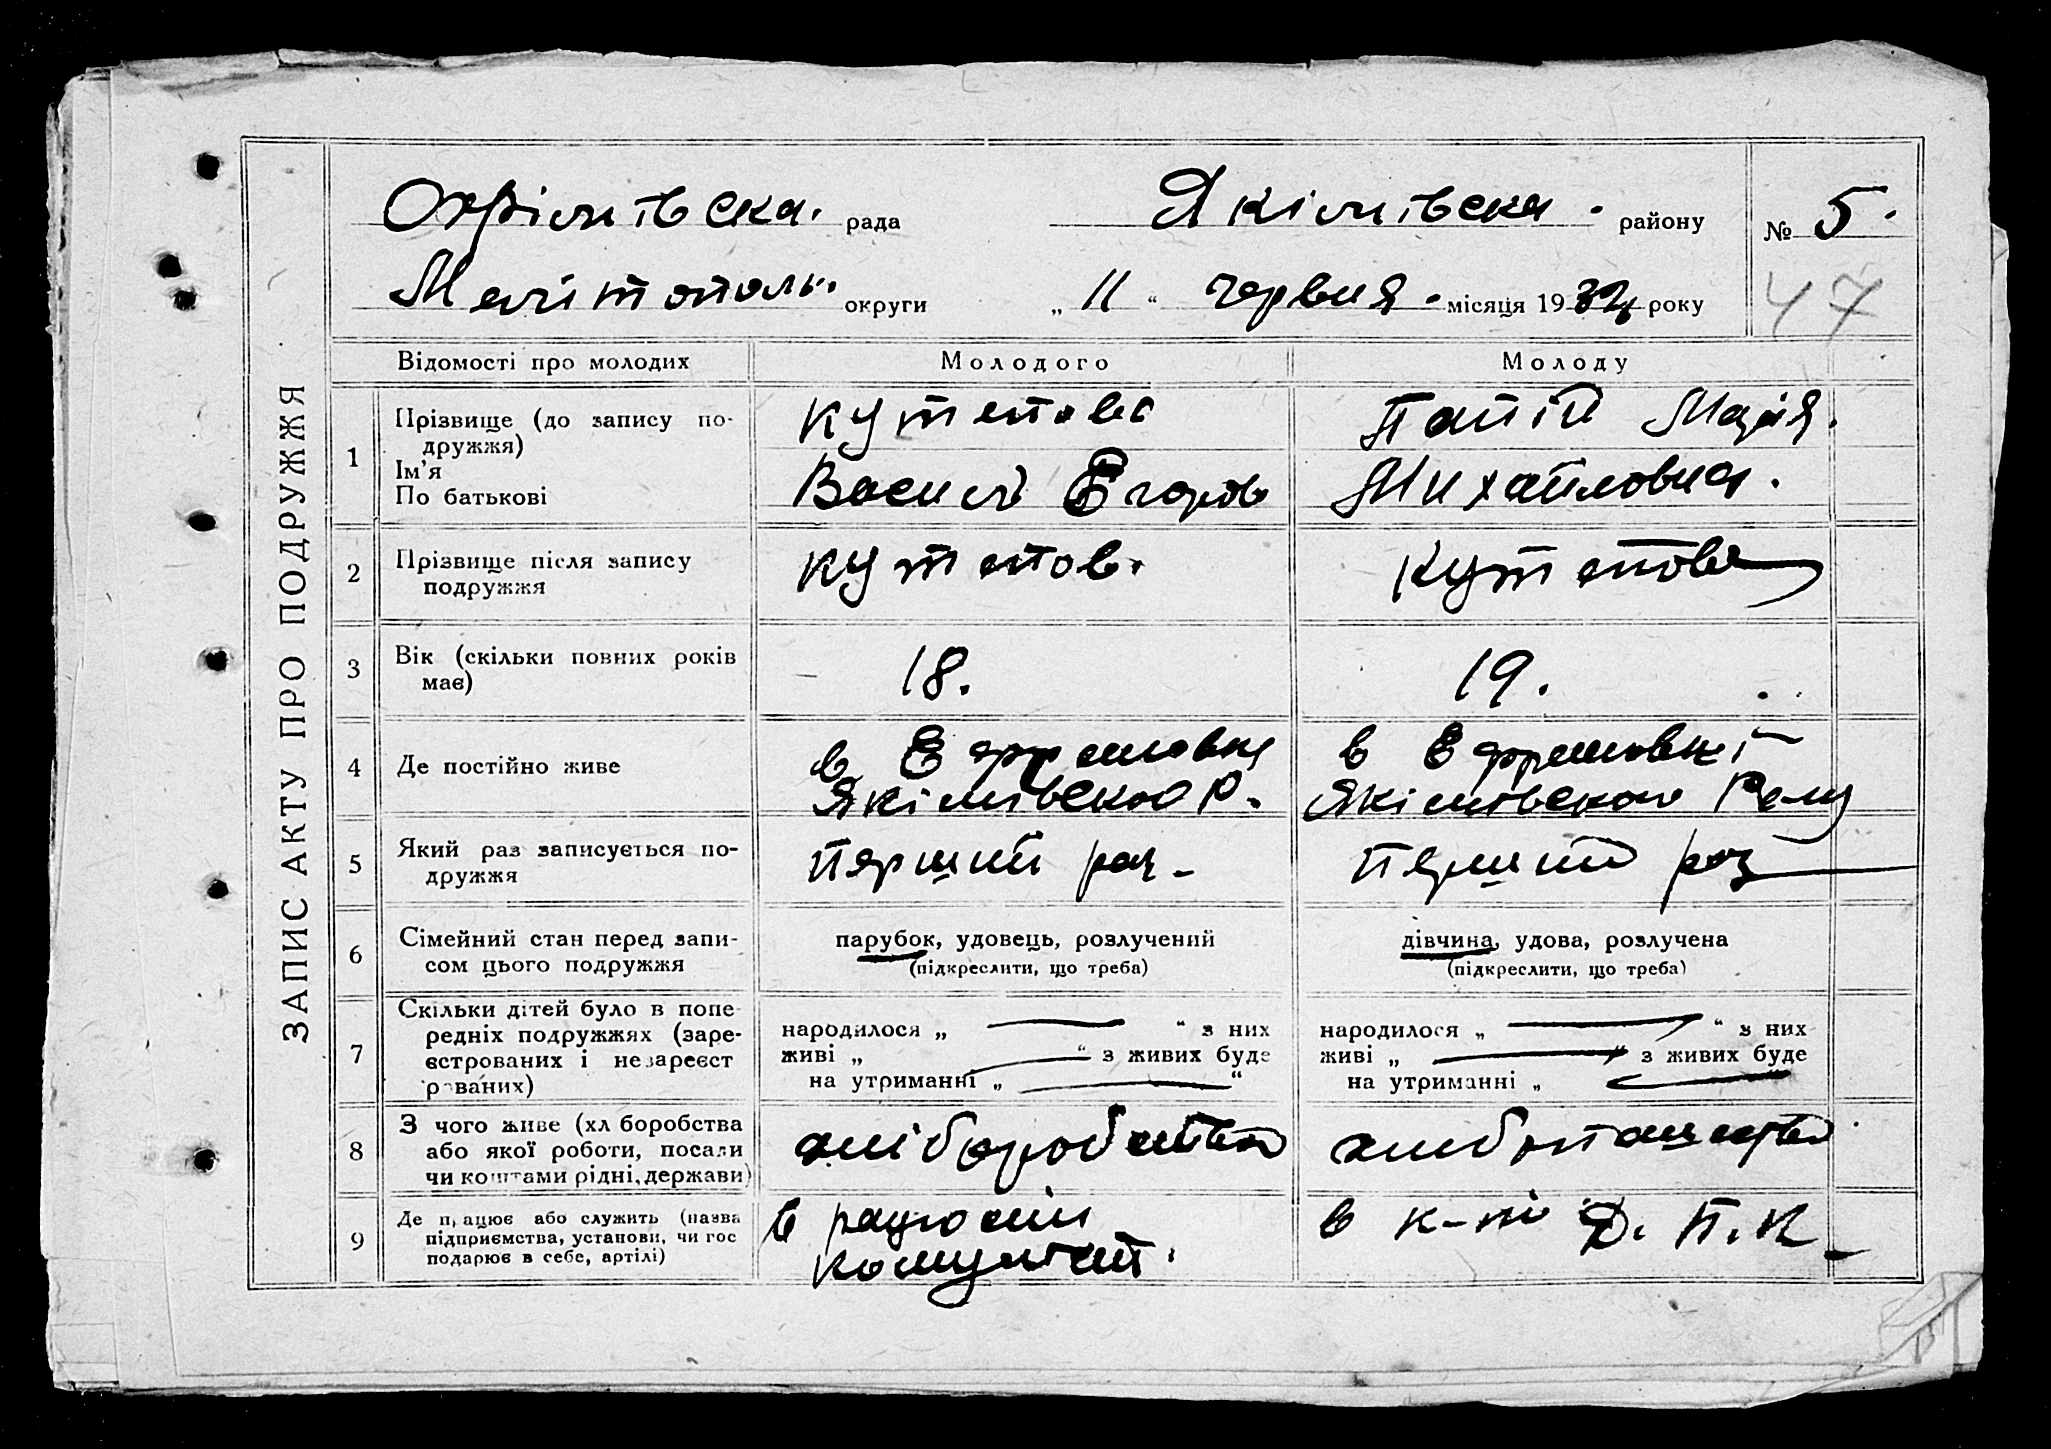 ЗАПИС АКТУ ПРО ПОДРУЖЖЯ
Охрімівска. рада Якімівска. району № 5.
Мелітополь. округи „ 11 “ червня. місяця 1932 року 47
Відомості про молодих Молодого Молоду
1 Прізвище (до запису по-
дружжя)
Ім'я
По батькові
Кутепов
Василь Егоров
Папій Марія.
Михайловна.
2 Прізвище після запису
подружжя
Кутепов.
Кутепова
3 Вік (скільки повних років
має)
18.
19.
4 Де постійно живе
в Ефремовки
Якімівского Р.
в Ефремовкі
Якімівского Району
5 Який раз записується по-
дружжя
Перший раз
Перший раз
6 Сімейний стан перед запи-
сом цього подружжя
парубок, удовець, розлучений
(підкреслити, що треба)
дівчина, удова, розлучена
(підкреслити, що треба)
7 Скільки дітей було в попе-
редніх подружжях (заре-
єстрованих і незареєст
рованих)
народилося „ “ з них
живі „ “ з живих буде
на утриманні „ “
народилося „ “ з них
живі „ “ з живих буде
на утриманні „ “
8 З чого живе (хл боробства
або якої роботи, посади
чи коштами рідні, держави)
9 Де працює або служить (назва
підприємства, установи, чи гос
подарює в себе, артілі)
в
в к-ті Д. П. К